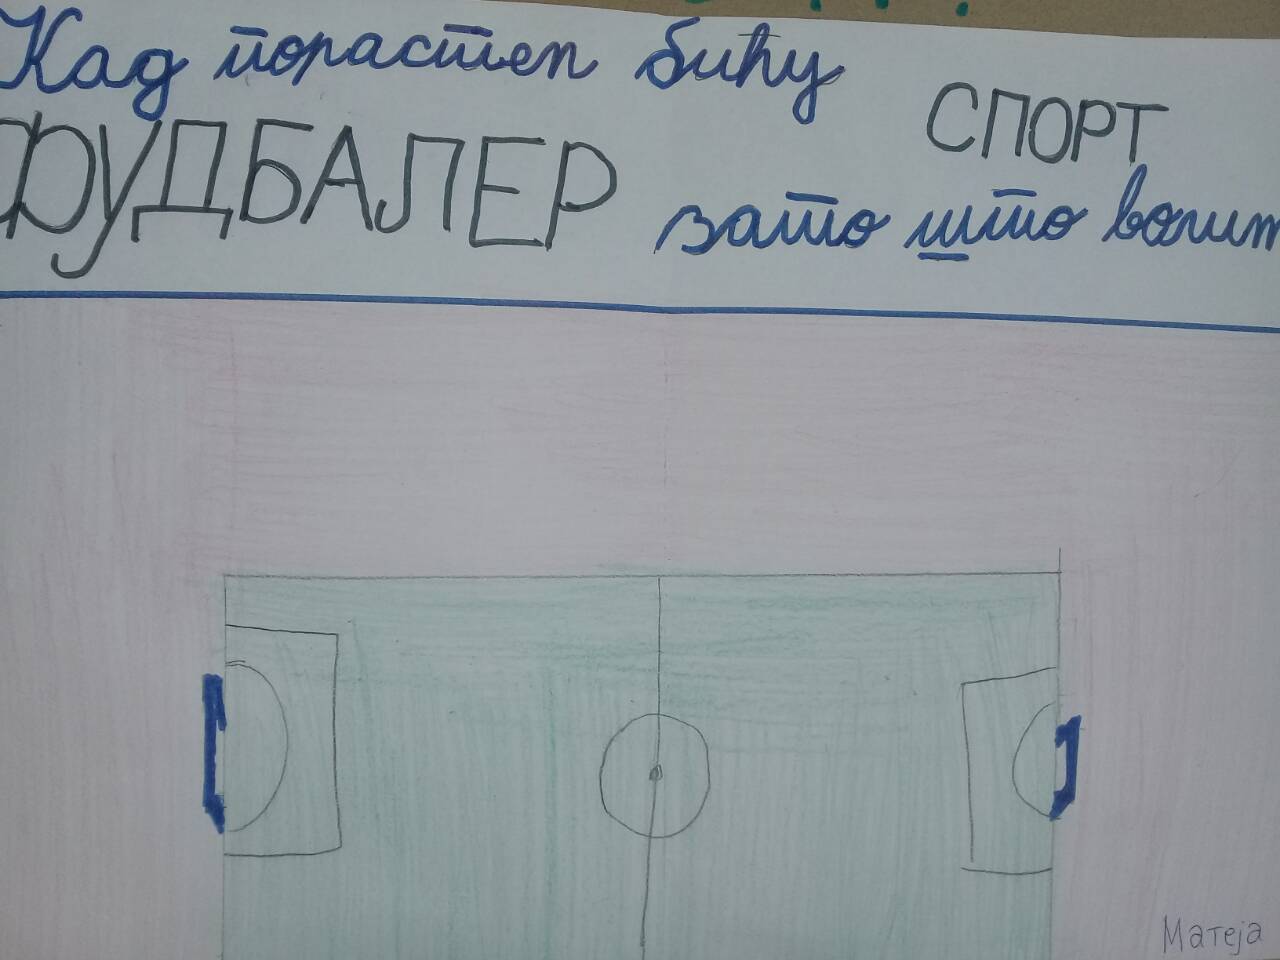 Кад порастем бићу
ФУДБАЛЕР зато што волим
СПОРТ
Матеја